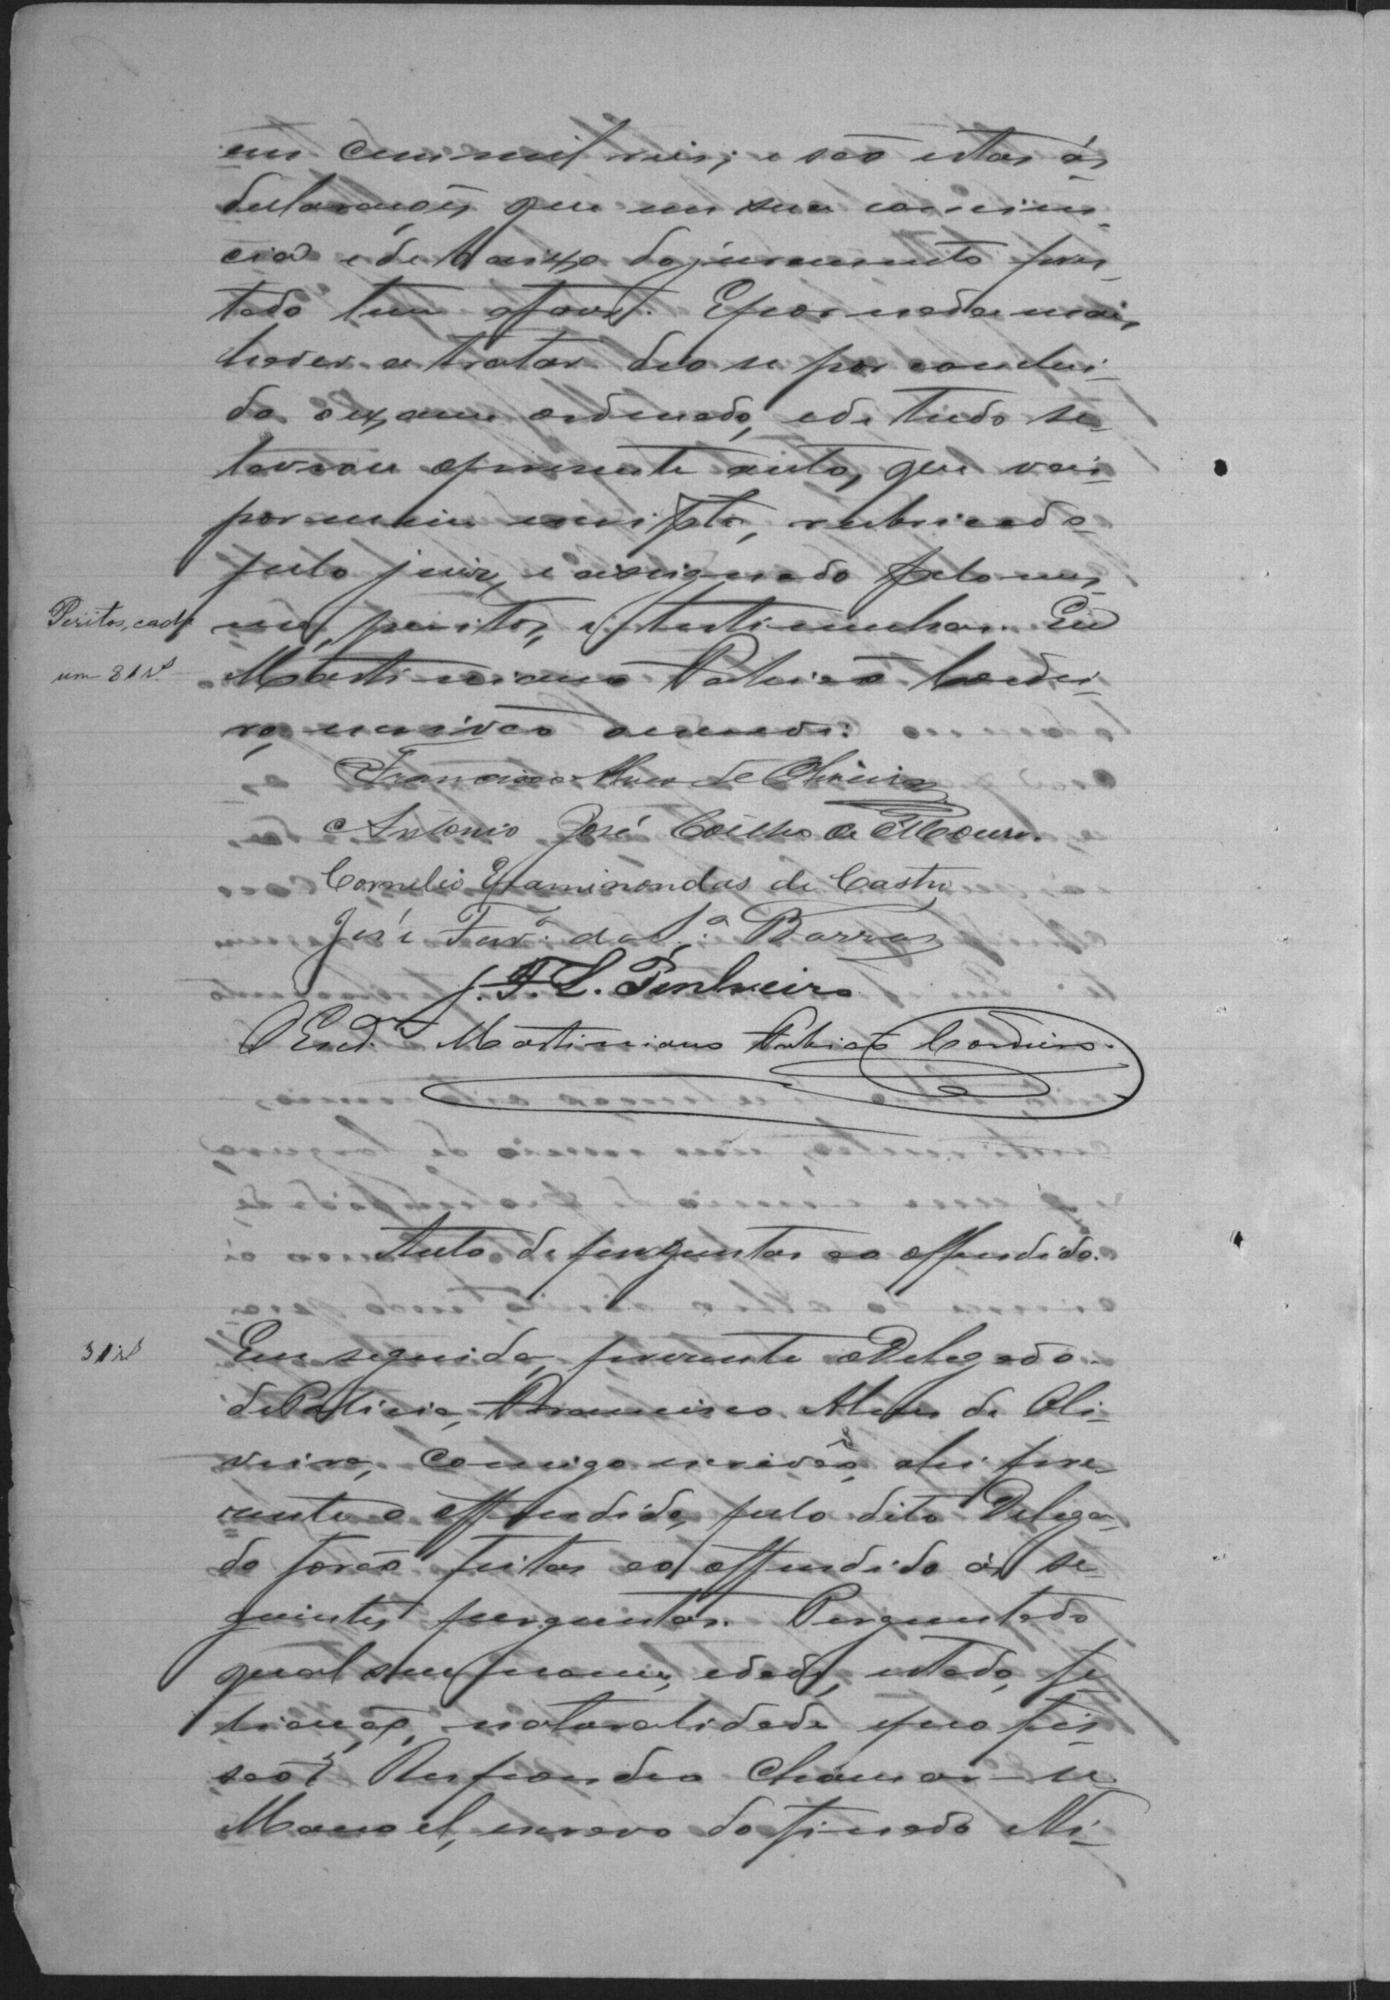 em cem mil reis; e são estas ás
declarações que em sua conscien-
cia e debaixo do juramento pres-
tado tem a fazer. E por nada mais
haver a tratar deo se por conclui-
do o exame ordenado, e de tudo se
lavrou o presente auto, que vai
por mim escripto, rubricado
pelo juiz, e assignado pelo mes-
mo, peritos, e testimunhas. Eu
Peritos, cada
um
Martiniano Patricio Cordei-
ro, escrivão escrevi.
Francisco Alves de Oliveira
Antonio José Coelho de Moura.
Cornelio Epaminondas de Castro
José Ferrª. da Sª. Barros
J. F. L. Pinheiro
O Escr.m Martiniano Patricio Cordeiro.
Auto de perguntas ao offendido.
Em seguida, presente o Delegado
de Policia, Francisco Alves de Oli-
veira, comigo escrivão, ahi pre-
sente o offendido, pelo dito Delega-
do forão feitas ao offendido ás se-
guintes perguntas. Perguntado
qual seu nome, edade, estado, fi-
liação, naturalidade e profis-
são? Respondeo chamar-se
Manoel, escravo do finado Mi-